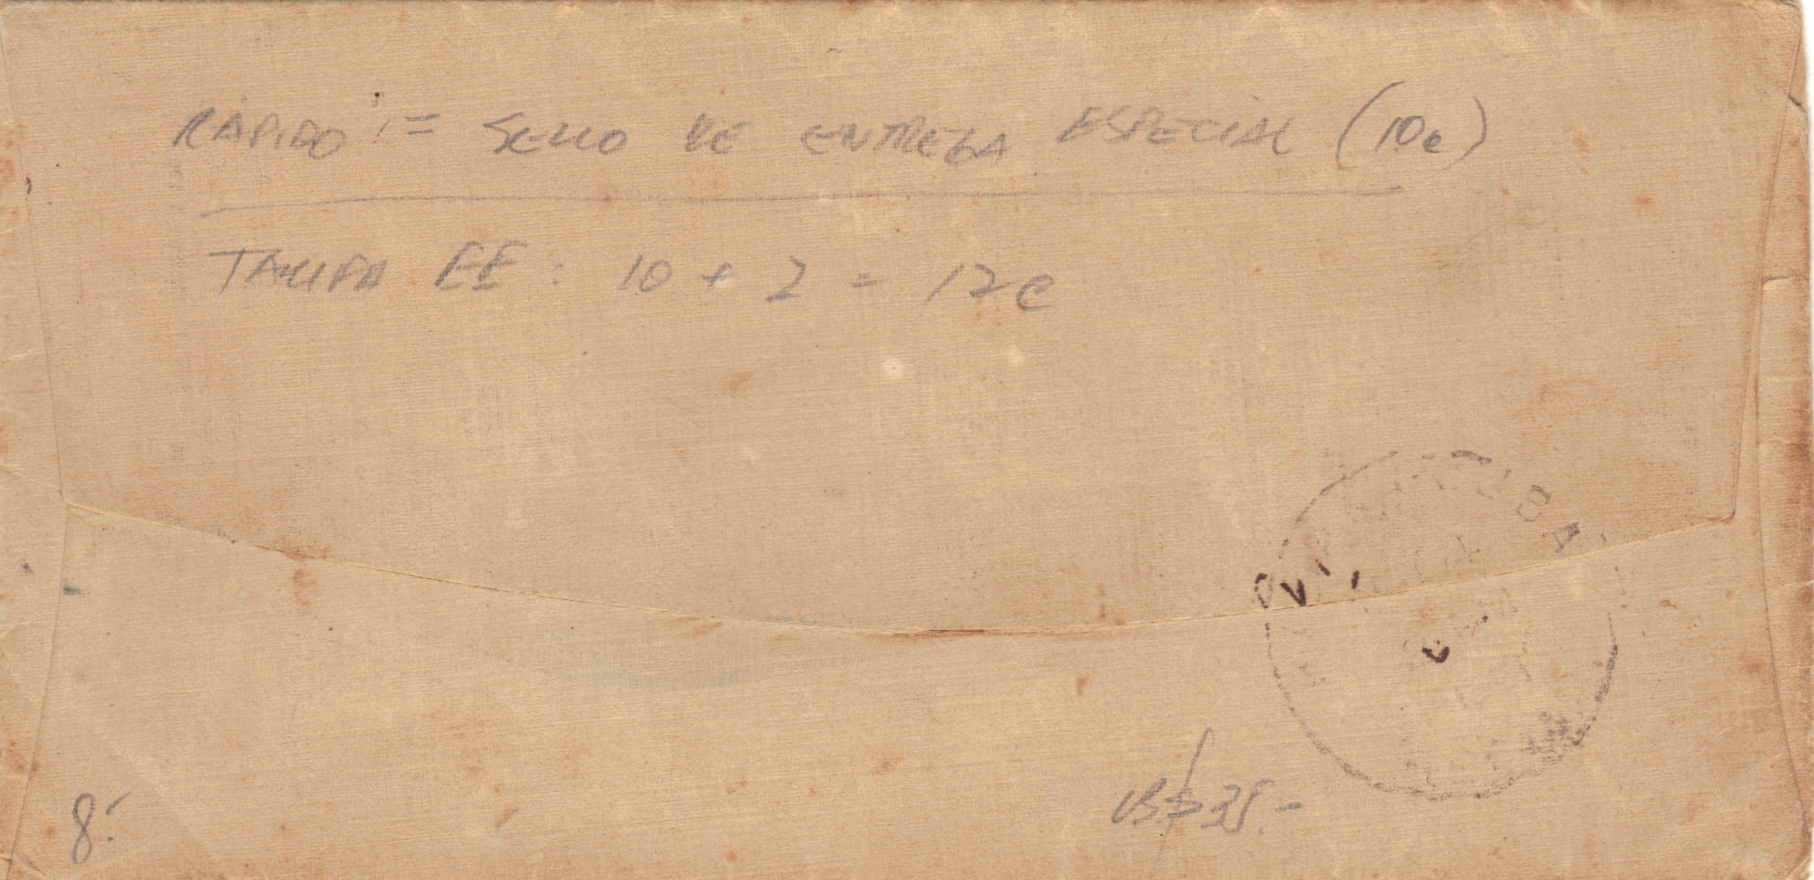 RÁPIDO = SELLO DE ENTREGA ESPECIAL (10c)
TARIFA EE : 10 + 2 = 12c
CUBA
8.-